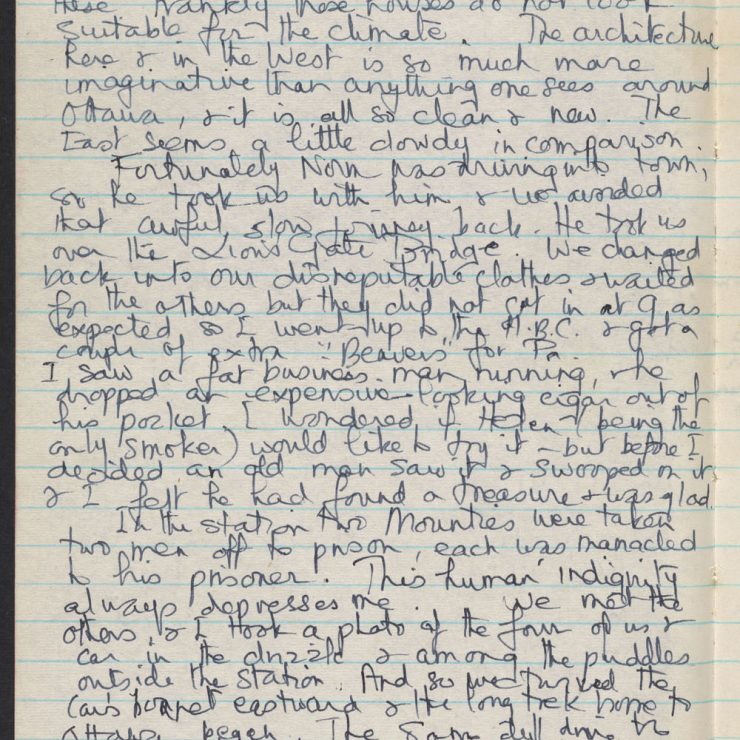 these frankly these houses do not look
suitable for the climate. The architecture
here & in the West is so much more
imaginative than anything one sees around
Ottawa, & it is all so clean & new. The
East seems a little dowdy in comparison.
Fortunately Norm was driving into town,
so he took us with him & we avoided
that awful, slow journey back. He took us
over the Lions Gate bridge. We changed
back into our disreputable clothes & waited
for the others but they did not get in at 9 as
expected so I went up to the H.B.C. & got a
couple of extra "Beavers" for Pa.
I saw a fat business man running, & he
dropped an expensive looking cigar out of
his pocket. I wondered if Helen (being the
only smoker) would like to try it - but before I
decided an old man saw it & swooped on it
& I felt he had found a treasure & was glad.
In the station two Mounties were taken
two men off to prison, each was manacled
to his prisoner. This human indignity
always depresses me. We met the
others, & I took a photo of the four of us &
car in the drizzle & among the puddles
outside the station. And so we turned the
car's bonnet eastward & the long trek home to
Ottawa began. The same dull drive to